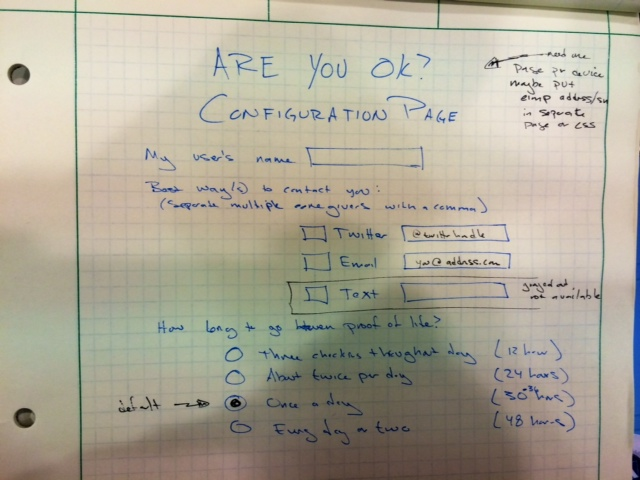 ARE YOU OK?
CONFIGURATION PAGE
need one
page per device
maybe put
eimp address/su
in separate
page or CSS
My user's name
Best way(s) to contact you:
(Separate multiple caregivers with a comma)
Twitter @twitterhandle
Email you@address.com
Text
grayed out
not available
How long to go between proof of life?
Three checkins throughout day (12 hour)
About twice per day (24 hours)
default → Once a day (30-36 hours)
Every day or two (48 hours)